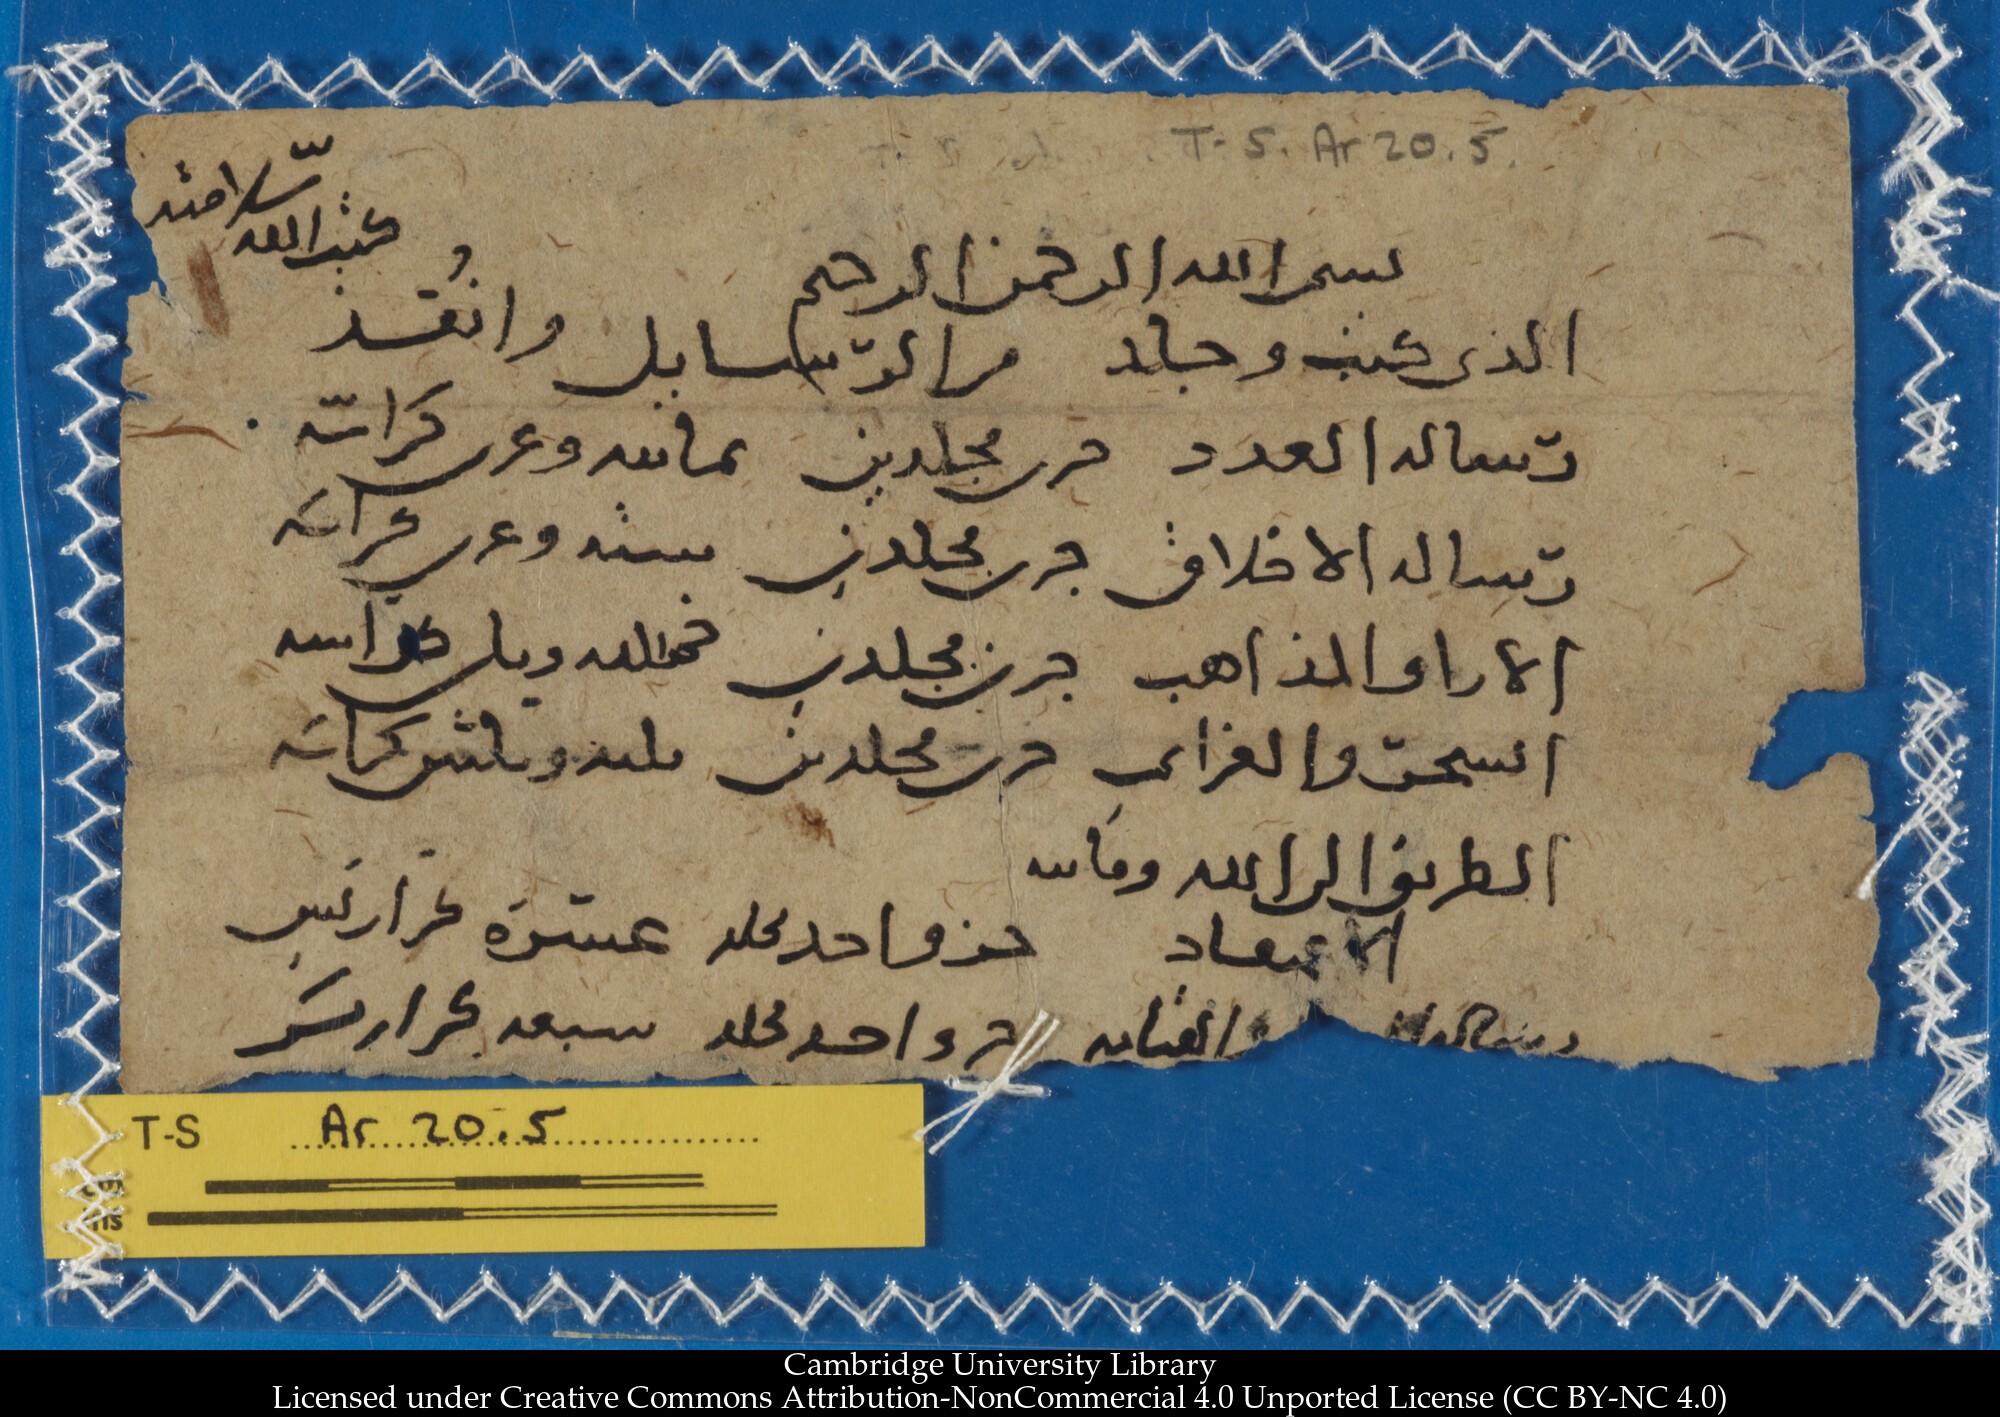 T-S. Ar 20.5.
كتب الله
سلامته
بسم الله الرحمن الرحيم
الذى كتب وجلد من الرسايل وانفذ
رسالة العدد جزئ مجلدين ثمانية وعشرين كراسة
رسالة الاخلاق جزئ مجلدين ستة وعشرين كراسة
الارا والمذاهب جزئ مجلدين كراسة
السحر والعزايم جزئ مجلدين ثلثة وثلثين كراسة
الطريق الى الله
جزو واحد مجلد عشرة كراريس
رسالة جزو واحد مجلد سبعة كراريس
T-S Ar 20.5
cms
Cambridge University Library
Licensed under Creative Commons Attribution-NonCommercial 4.0 Unported License (CC BY-NC 4.0)